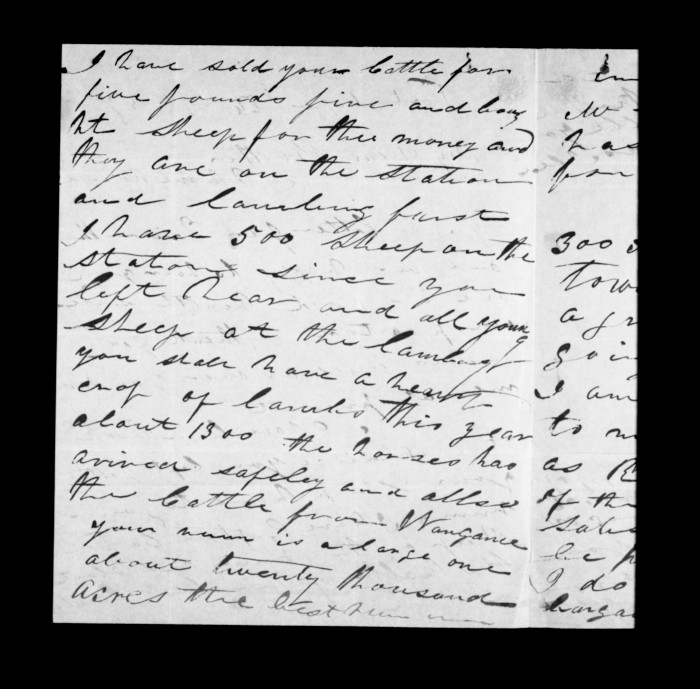 I have sold your Cattle for
five pounds five and boug
ht sheep for thee money and
they are on the station
and lambing farst
I have 500 sheep on the
station since you
left hear and all young
sheep at the lambing
you shall have a
crop of lambs this year
about 1300 the horses has
arived safeley and allso
the Cattle from Wanganue
your runn is a large one
about twenty thousand
acres the best runn
W
has
for
300
tow
a gr
goin
I am
to m
as R
of the
sales
be p
I do
bargai